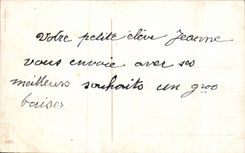 Votre petite élève Jeanne
vous envoie avec ses
meilleurs souhaits un gros
baiser